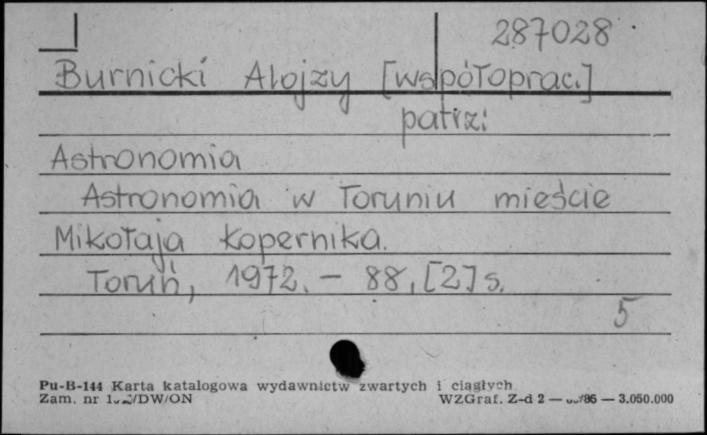 287028
Burnicki Alojzy [współoprac.]
patrz:
Astronomia
Astronomia w Toruniu mieście
Mikołaja Kopernika.
Toruń, 1972. - 88, [2] s.
5
Pu-B-144 Karta katalogowa wydawnictw zwartych i ciągłych
Zam. nr /DW/ON WZGraf. Z-d 2 — /86 — 3.050.000